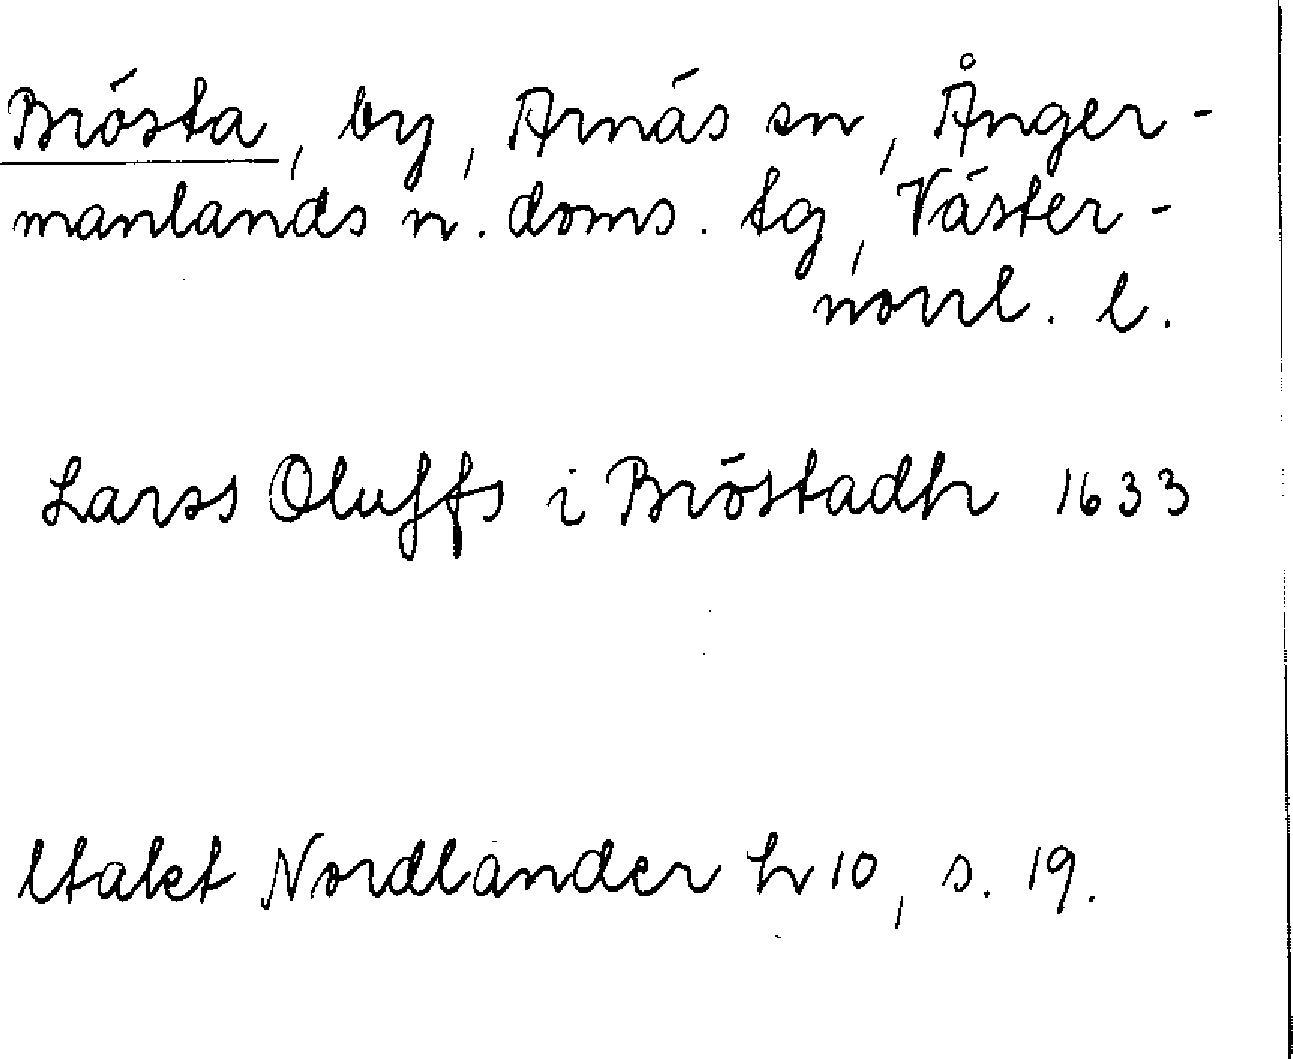 Brösta, by, Arnäs sn, Ånger-
manlands n. doms. tg, Väster-
norrl. l.
Larss Oluffs i Bröstadh 1633
Utakt Nordlander h 10, s. 19.